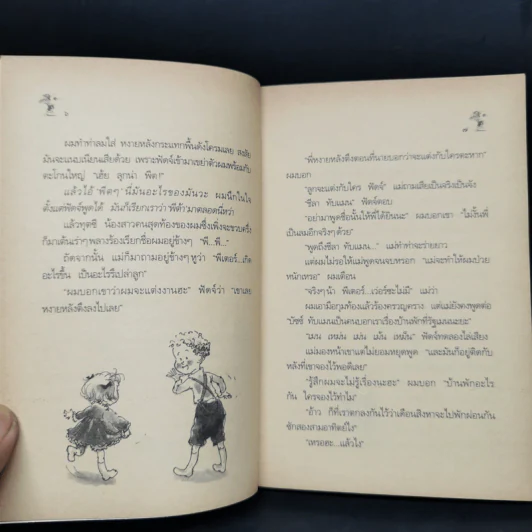 ผมทำท่าล้มใส่ หงายหลังกระแทกพื้นดังโครมเลย
มันจะแนบเนียนเสียด้วย เพราะฟัดจ์เข้ามาเขย่าตัวผมพร้อมกับ
ตะโกนใหญ่ "เฮ้ย ลูกน่า พีด!"
แล้วไอ้ 'พีดๆ' นี่มันอะไรของมันวะ ผมนึกในใจ
ตั้งแต่ฟัดจ์พูดได้ มันก็เรียกเราว่า 'พีต้า' มาตลอดนี่หว่า
แล้วทูตซี น้องสาวคนสุดท้องของผมซึ่งเพิ่งจะขวบครึ่ง
ก็มาเต้นเร่าๆ พลางร้องเรียกชื่อผมอยู่ข้างๆ "พี...พี..."
ถัดจากนั้น แม่ก็มาถามอยู่ข้างๆ หูว่า "พีเตอร์...เกิด
อะไรขึ้น เป็นอะไรรึเปล่าลูก"
"ผมบอกเขาว่าผมจะแต่งงานฮะ" ฟัดจ์ว่า "เขาเลย
หงายหลังตึงลงไปเลย"
"พี่หงายหลังตึงตอนที่นายบอกว่าจะแต่งกับใครตะหาก"
ผมบอก
"ลูกจะแต่งกับใคร ฟัดจ์" แม่ถามเสียเป็นจริงเป็นจัง
"ชีลา ทับแมน" ฟัดจ์ตอบ
"อย่ามาพูดชื่อนั้นให้พี่ได้ยินนะ" ผมบอกเขา "ไม่งั้นพี่
เป็นลมอีกจริงๆ ด้วย"
"พูดถึงชีลา ทับแมน..." แม่ทำท่าจะร่ายยาว
แต่ผมไม่รอให้แม่พูดจนจบหรอก "แม่จะทำให้ผมป่วย
หนักเหรอ" ผมเตือน
"จริงๆ น้า พีเตอร์...เว่อร์ซะไม่มี" แม่ว่า
ผมเอามือกุมท้องแล้วร้องครวญคราง แต่แม่ยังคงพูดต่อ
"บัซซ์ ทับแมนเป็นคนบอกเราเรื่องบ้านพักที่รัฐเมนนะยะ"
"เมน เหม่น เม่น เม้น เหม็น" ฟัดจ์ทดลองไล่เสียง
แม่มองหน้าเขาแต่ไม่ยอมหยุดพูด "และมันก็อยู่ติดกับ
หลังที่เขาจองไว้พอดีเลย"
"รู้สึกผมจะไม่รู้เรื่องนะฮะ" ผมบอก "บ้านพักอะไร
กัน ใครจองไว้ทำไม"
"อ้าว ก็ที่เราตกลงกันไว้ว่าเดือนสิงหาจะไปพักผ่อนกัน
ซักสองสามอาทิตย์ไง"
"เหรอฮะ...แล้วไง"